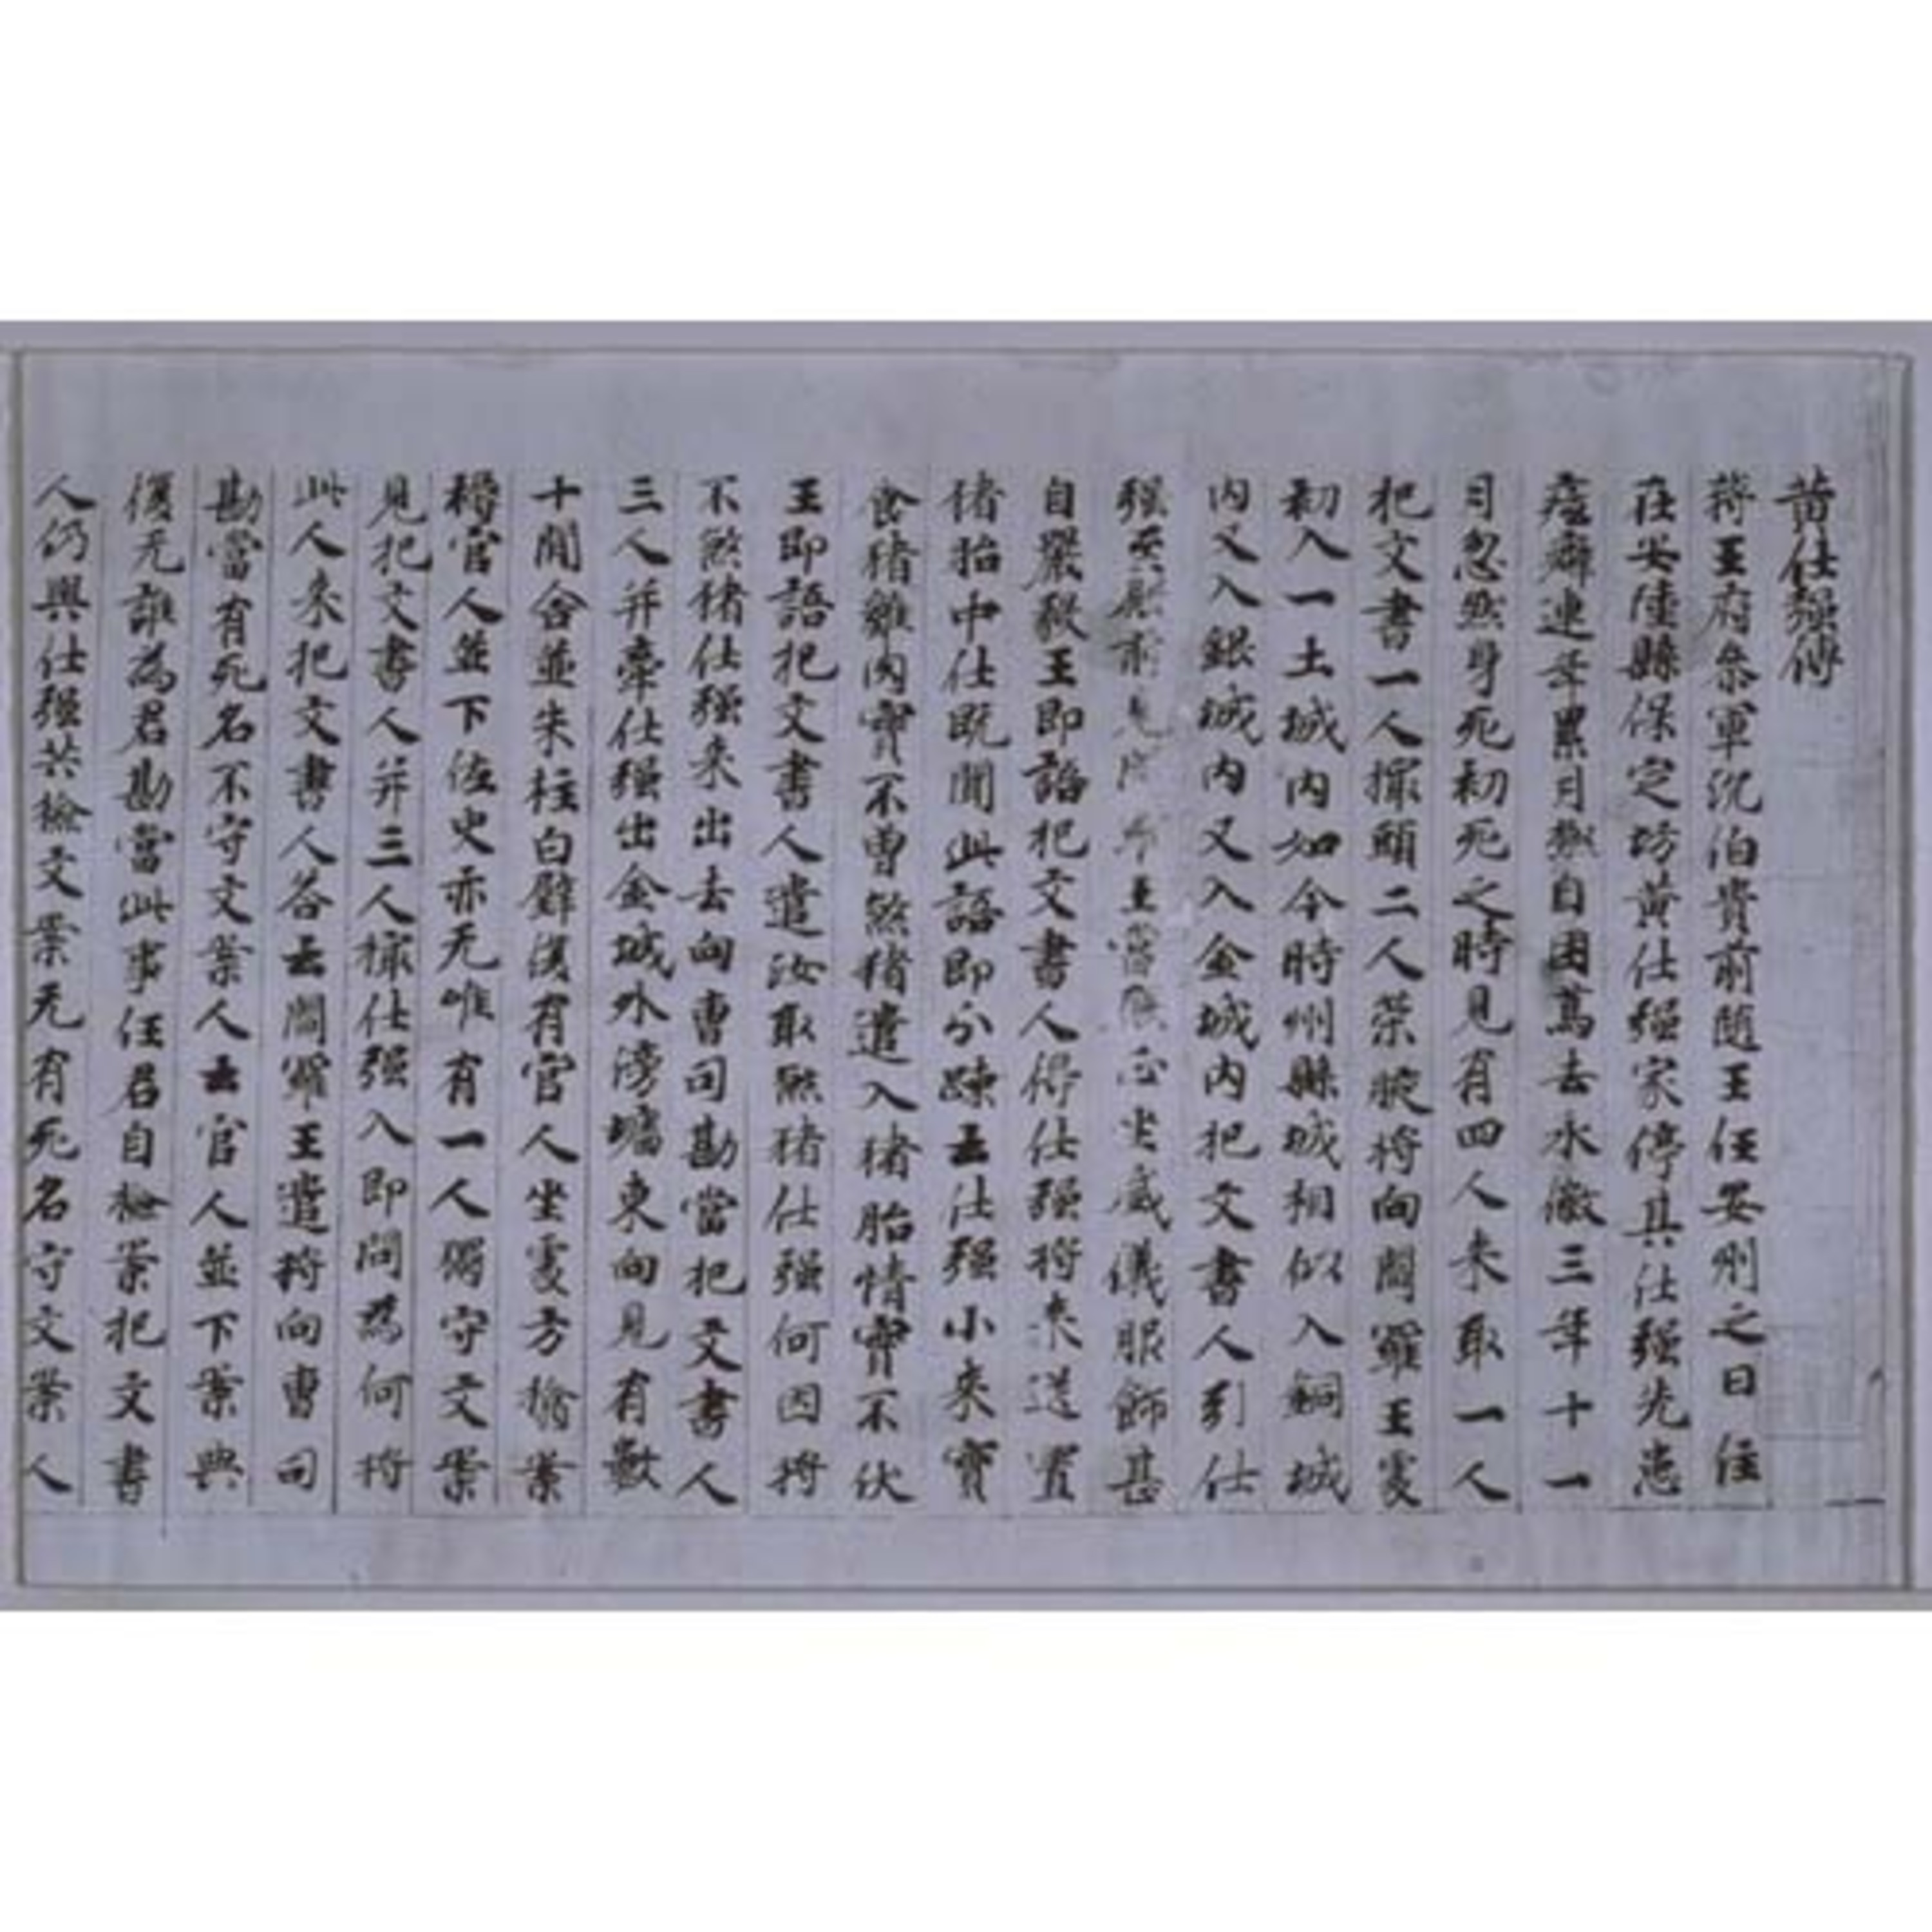 黄仕强傳
蔣王府叅軍沉伯貴前隨王任安州之日住
在安陸縣保定坊黄仕强家停其仕强先患
痃癖連年累月焦自困篤去永徽三年十一
月忽然身死初死之時見有四人来取一人
把文書一人撮頭二人策腋将向閻羅王處
初入一土城内如今時州縣城相似入銅城
内又入銀城内又入金城内把文書人引仕
强 前見 王當 正坐威儀服飾甚
自嚴毅王即語把文書人得仕强将来送置
猪胎中仕既聞此語即分踈云仕强小来實
食猪雞肉實不曽煞猪遣入猪胎情實不伏
王即語把文書人遣汝取煞猪仕强何因将
不煞猪仕强来出去向曹司勘當把文書人
三人并牽仕强出金城外傍墻東向見有數
十間舍並朱柱白壁復有官人坐處方撿案
褥官人並下佐史亦无唯有一人獨守文案
見把文書人并三人撮仕强入即問為何将
此人来把文書人答云閻羅王遣将向曹司
勘當有死名不守文案人云官人並下案典
復无誰為君勘當此事任君自檢案把文書
人仍與仕强共檢文案无有死名守文案人